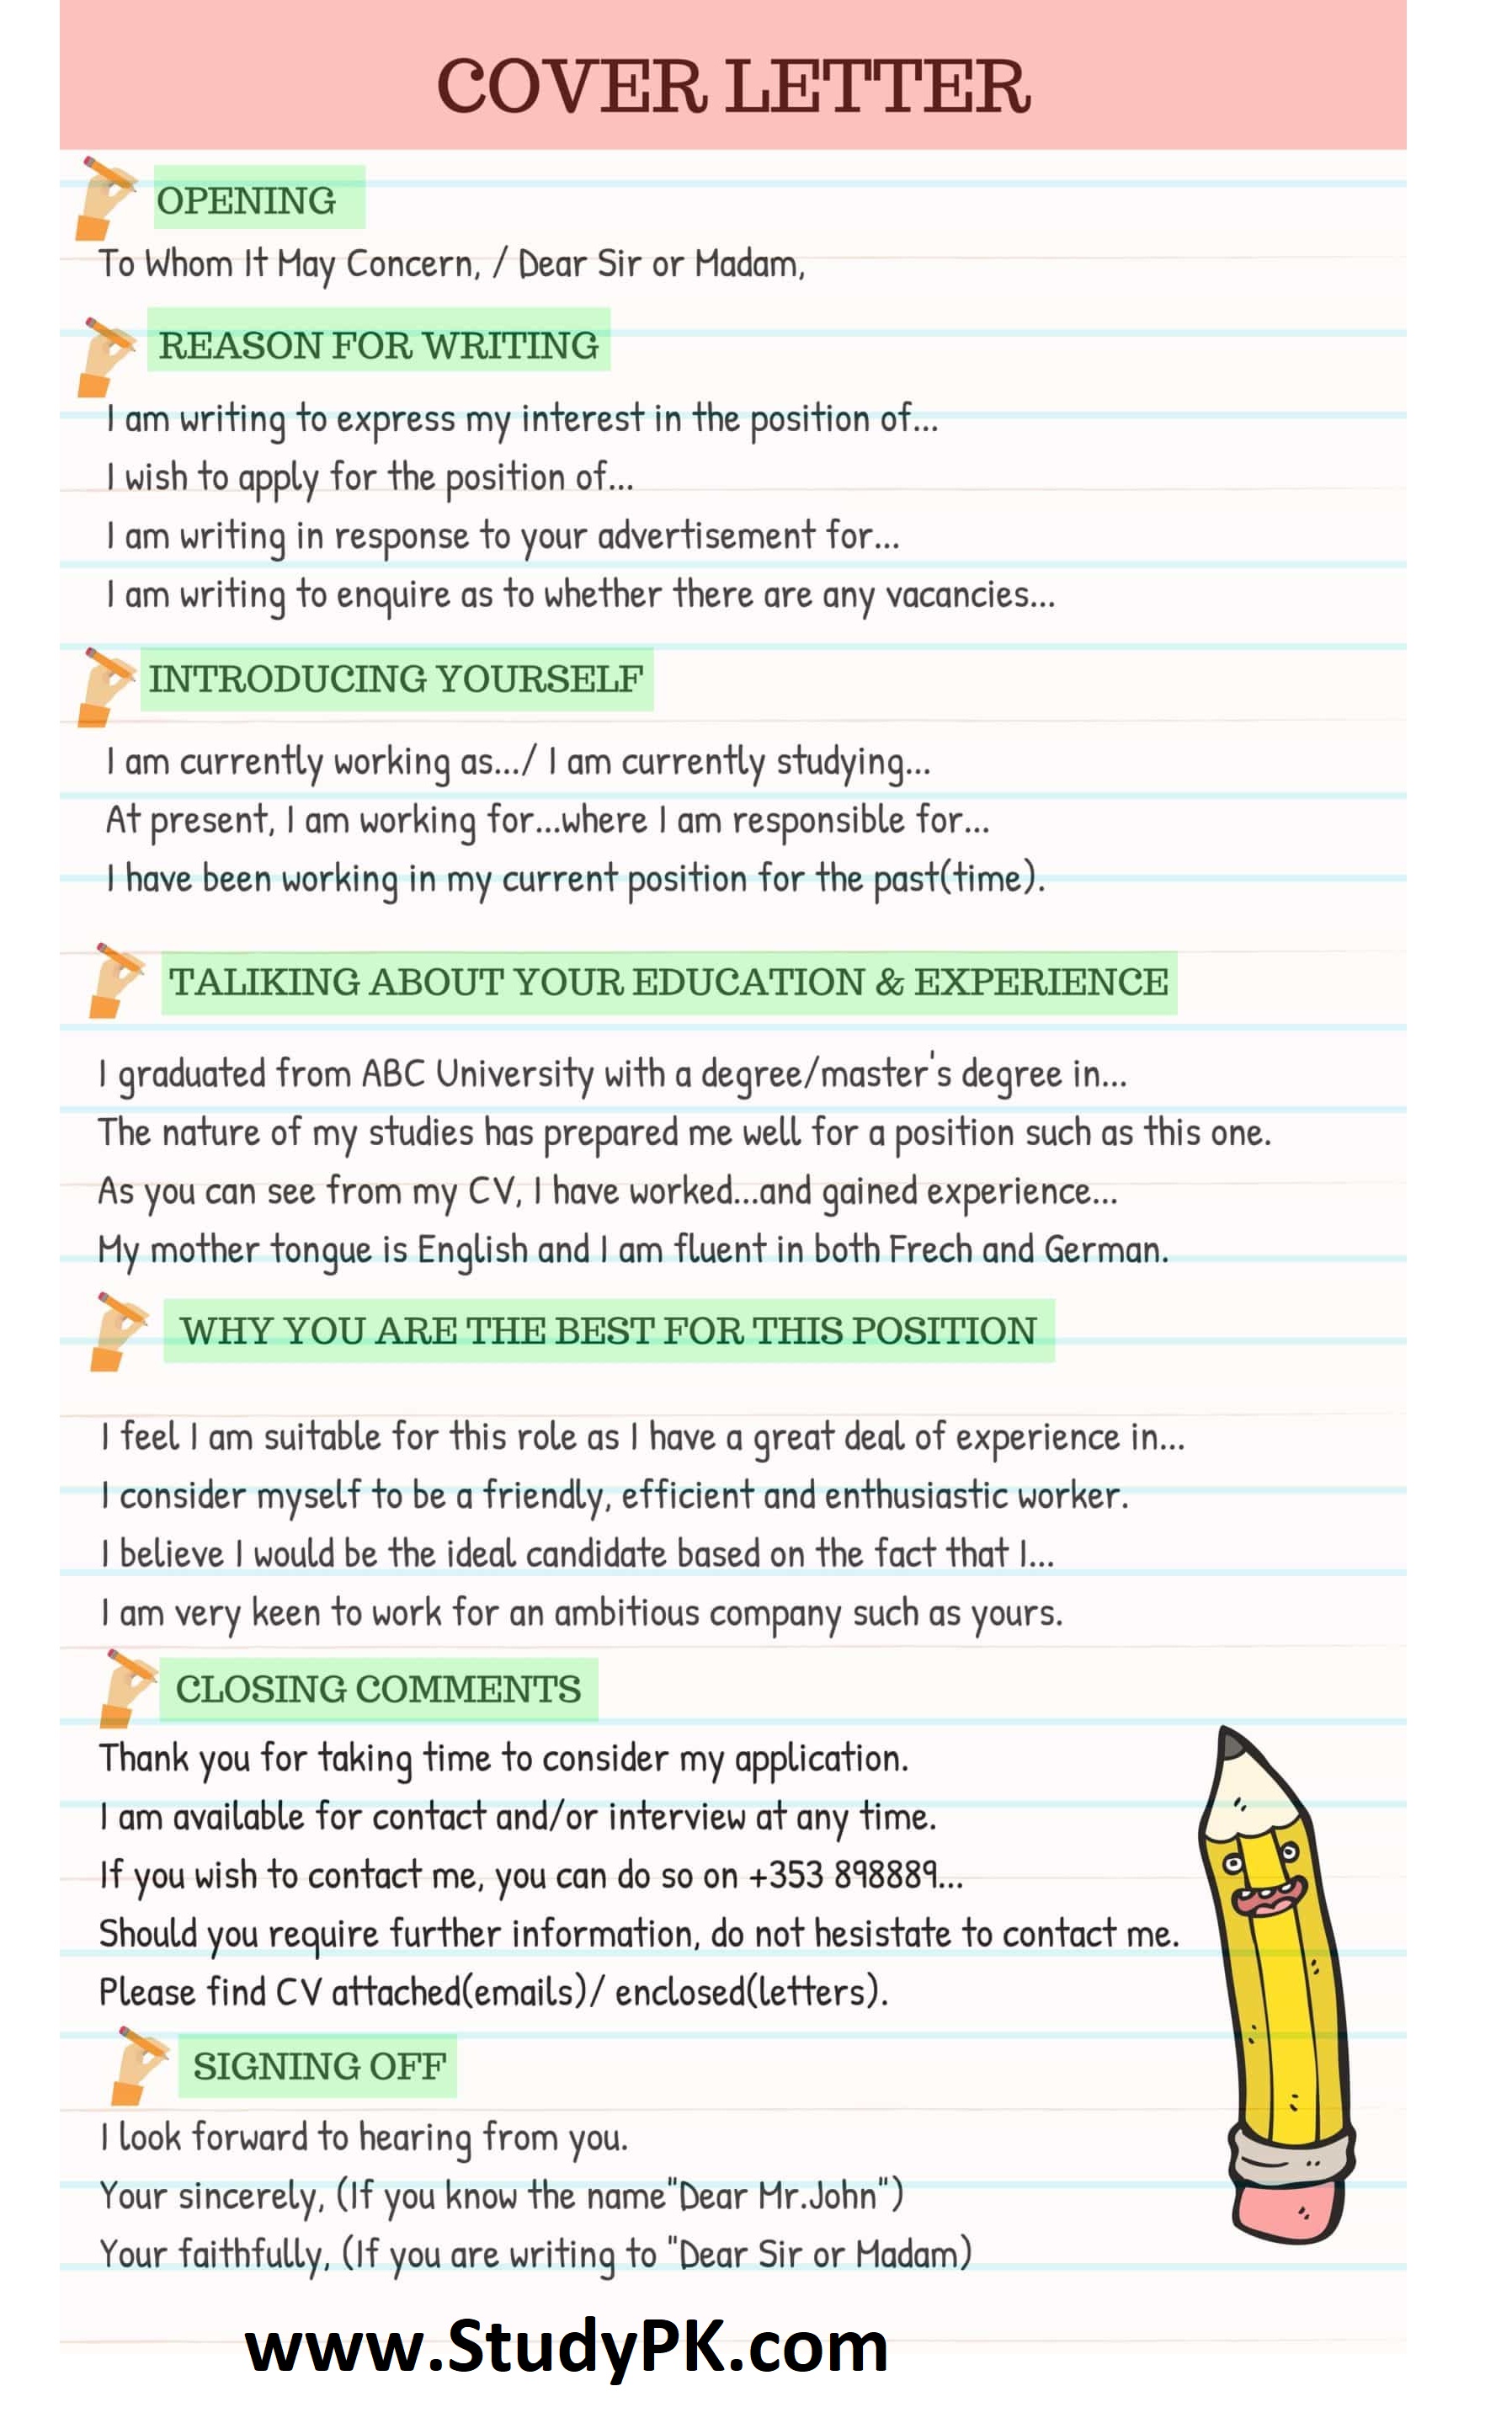 COVER LETTER
OPENING
To Whom It May Concern, / Dear Sir or Madam,
REASON FOR WRITING
I am writing to express my interest in the position of...
I wish to apply for the position of...
I am writing in response to your advertisement for...
I am writing to enquire as to whether there are any vacancies...
INTRODUCING YOURSELF
I am currently working as.../ I am currently studying...
At present, I am working for...where I am responsible for...
I have been working in my current position for the past(time).
TALIKING ABOUT YOUR EDUCATION & EXPERIENCE
I graduated from ABC University with a degree/master's degree in...
The nature of my studies has prepared me well for a position such as this one.
As you can see from my CV, I have worked...and gained experience...
My mother tongue is English and I am fluent in both Frech and German.
WHY YOU ARE THE BEST FOR THIS POSITION
I feel I am suitable for this role as I have a great deal of experience in...
I consider myself to be a friendly, efficient and enthusiastic worker.
I believe I would be the ideal candidate based on the fact that I...
I am very keen to work for an ambitious company such as yours.
CLOSING COMMENTS
Thank you for taking time to consider my application.
I am available for contact and/or interview at any time.
If you wish to contact me, you can do so on +353 898889...
Should you require further information, do not hesistate to contact me.
Please find CV attached(emails)/ enclosed(letters).
SIGNING OFF
I look forward to hearing from you.
Your sincerely, (If you know the name"Dear Mr.John")
Your faithfully, (If you are writing to "Dear Sir or Madam)
www.StudyPK.com